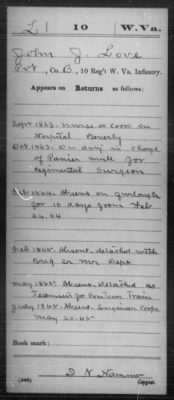 L | 10 | W.Va.
John J. Love
Pvt, Co. B, 10 Reg't W. Va. Infantry.
Appears on Returns as follows:
Sept 1863. Nurse or Cook in
Hospital Beverly
Oct 1863. On duty in charge
of Panier mule for
regimental Surgeon
Feb 1864. Absent on furlough
for 10 days from Feb
24.64
Feb 1865 Absent detached with
Brig
May 1865 Absent Detached as
Teamster for Train
July 1865 Absent. Engineer Corps
May 20.65
Book mark:
(546)
Copyist.